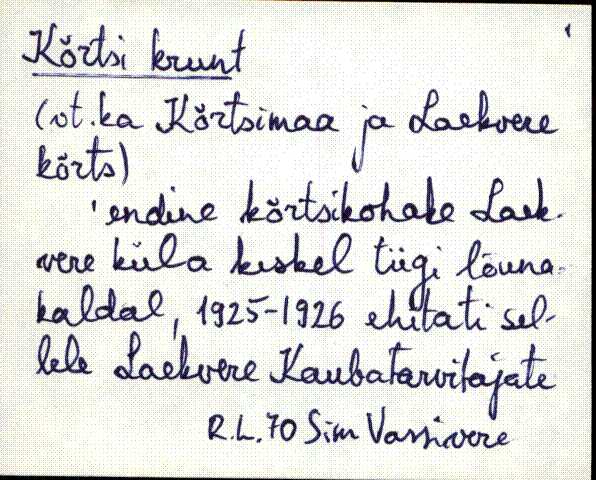 Kõrtsi krunt
(vt. ka Kõrtsimaa ja Laekvere
kõrts)
'endine kõrtsikohake Laek-
vere küla keskel tiigi lõuna-
kaldal, 1925-1926 ehitati sel-
lele Laekvere Kaubatarvitajate
R.L. 70 Sim Vassivere